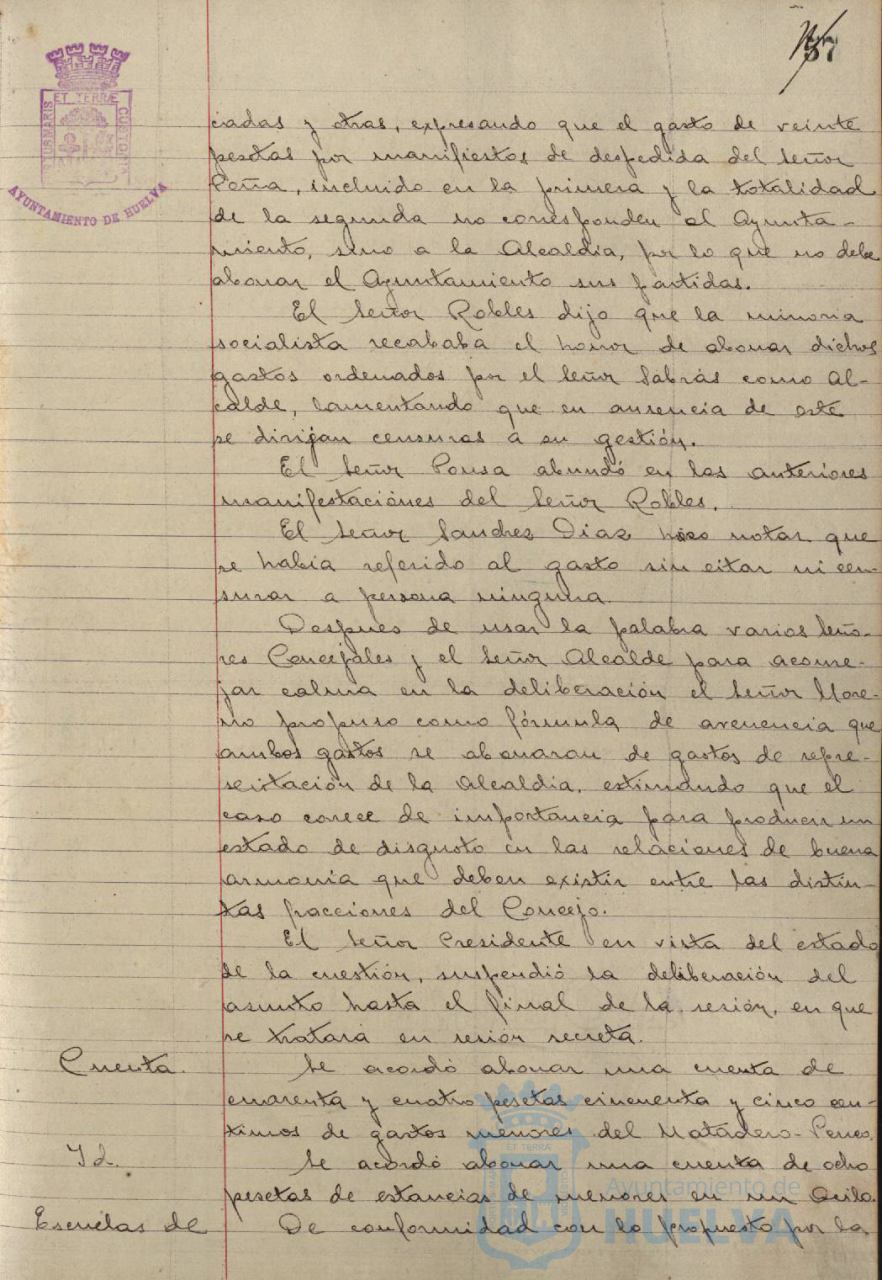 57
ET TERRÆ
PORTUS MARIS
CUSTODIA
AYUNTAMIENTO DE HUELVA
ciadas y otras, expresando que el gasto de veinte
pesetas por manifiestos de despedida del Señor
Peña, incluido en la primera y la totalidad
de la segunda no corresponden al Ayunta-
miento, sino a la Alcaldia, por lo que no debe
abonar el Ayuntamiento sus partidas.
El Señor Robles dijo que la minoria
socialista recababa el honor de abonar dichos
gastos ordenados por el Señor Sabrás como Al-
calde, lamentando que en ausencia de este
se dirijan censuras a su gestión.
El Señor Ponsa abundó en las anteriores
manifestaciónes del Señor Robles.
El Señor Sanchez Diaz hizo notar que
se habia referido al gasto sin citar ni cen-
surar a persona ninguna.
Despues de usar la palabra varios Seño-
res Concejales y el Señor Alcalde para aconse-
jar calma en la deliberación el Señor More-
no propuso como fórmula de avenencia que
ambos gastos se abonaran de gastos de repre-
sentación de la Alcaldia, estimando que el
caso carece de importancia para producir un
estado de disgusto en las relaciones de buena
armonia que deben existir entre las distin-
tas fracciones del Concejo.
El Señor Presidente en vista del estado
de la cuestión, suspendió la deliberación del
asunto hasta el final de la sesión, en que
se tratará en sesión secreta.
Cuenta. Se acordó abonar una cuenta de
cuarenta y cuatro pesetas cincuenta y cinco cen-
timos de gastos menores del Matadero-
Id. Se acordó abonar una cuenta de ocho
pesetas de estancias de menores en un Asilo.
Escuelas de De conformidad con lo propuesto por la
ET TERRÆ
Ayuntamiento de
HUELVA